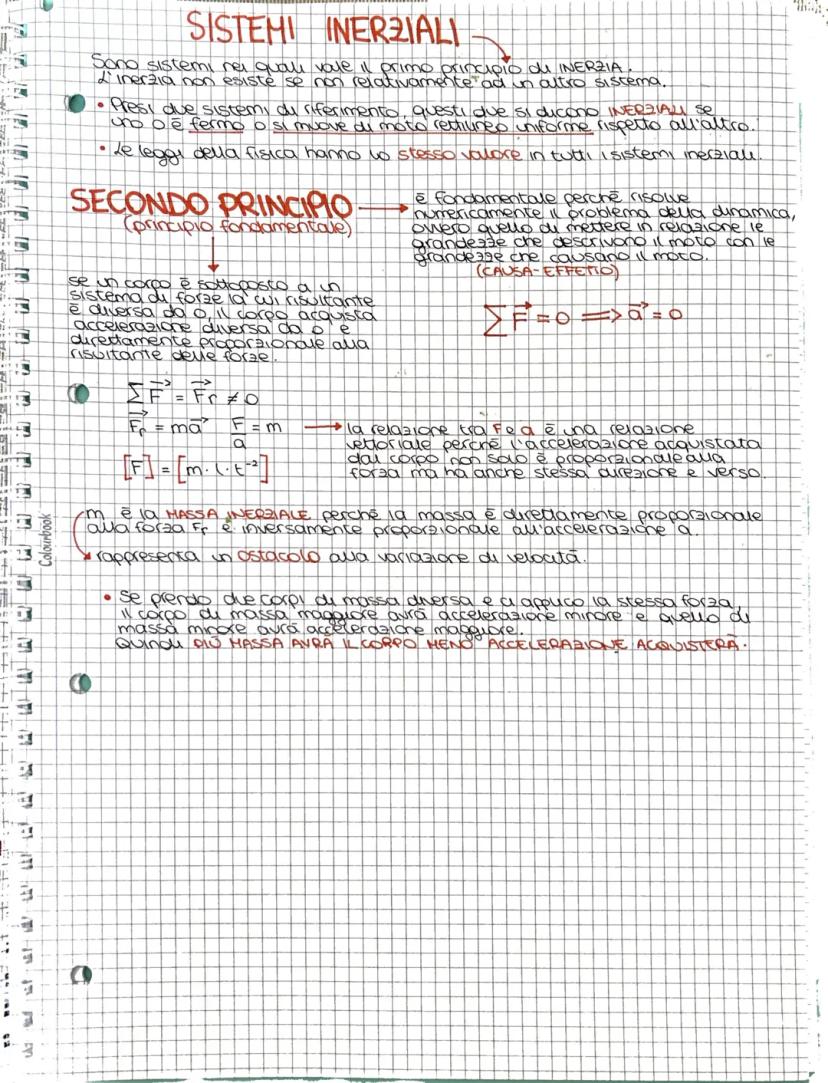 SISTEMI INERZIALI
Sono sistemi nei quali vale il primo principio di INERZIA.
L'inerzia non esiste se non relativamente ad un altro sistema.
• Presi due sistemi di riferimento, questi due si dicono INERZIALI se
uno o è fermo o si muove di moto rettilineo uniforme rispetto all'altro.
• Le leggi della fisica hanno lo stesso valore in tutti i sistemi inerziali.
SECONDO PRINCIPIO →
(principio fondamentale)
è fondamentale perché risolve
numericamente il problema della dinamica,
ovvero quello di mettere in relazione le
grandezze che descrivono il moto con le
grandezze che causano il moto.
(CAUSA-EFFETTO)
se un corpo è sottoposto a un
sistema di forze la cui risultante
è diversa da 0, il corpo acquista
accelerazione diversa da 0 e
direttamente proporzionale alla
risultante delle forze.
∑F⃗ = 0 ⟹ a⃗ = 0
∑F⃗ = F⃗r ≠ 0
F⃗r = ma⃗ F/a = m →
[F] = [m · l · t⁻²]
la relazione tra F e a è una relazione
vettoriale perché l'accelerazione acquistata
dal corpo non solo è proporzionale alla
forza ma ha anche stessa direzione e verso.
m è la MASSA INERZIALE perché la massa è direttamente proporzionale
alla forza Fr e inversamente proporzionale all'accelerazione a.
rappresenta un ostacolo alla variazione di velocità.
• Se prendo due corpi di massa diversa e ci applico la stessa forza,
il corpo di massa maggiore avrà accelerazione minore e quello di
massa minore avrà accelerazione maggiore.
Quindi PIÙ MASSA AVRÀ IL CORPO MENO ACCELERAZIONE ACQUISTERÀ.
Colourbook